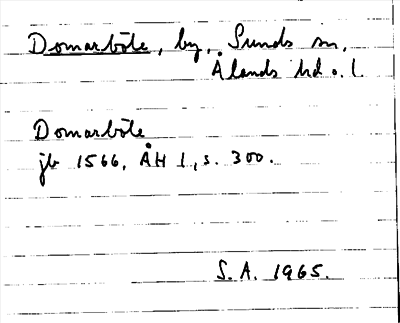 Domarböle, by, Sunds sn,
Ålands hd o. l.
Domarböle
jb 1566, ÅH 1, s. 300.
S. A. 1965.